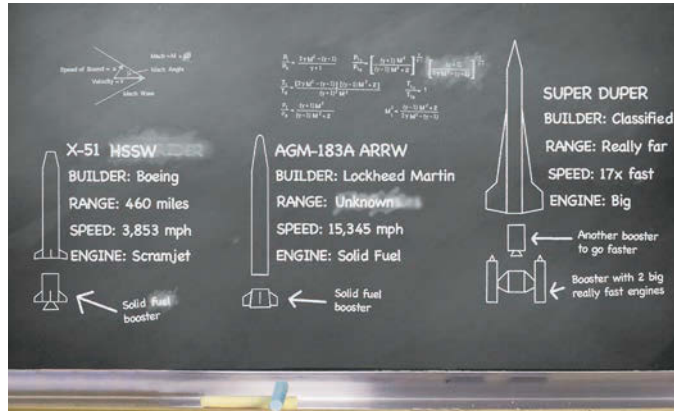 Mach Angle
Speed of Sound = a
Velocity = v
Mach Wave
X-51 HSSW
BUILDER: Boeing
RANGE: 460 miles
SPEED: 3,853 mph
ENGINE: Scramjet
Solid fuel
booster
AGM-183A ARRW
BUILDER: Lockheed Martin
RANGE: Unknown
SPEED: 15,345 mph
ENGINE: Solid Fuel
Solid fuel
booster
SUPER DUPER
BUILDER: Classified
RANGE: Really far
SPEED: 17x fast
ENGINE: Big
Another booster
to go faster
Booster with 2 big
really fast engines